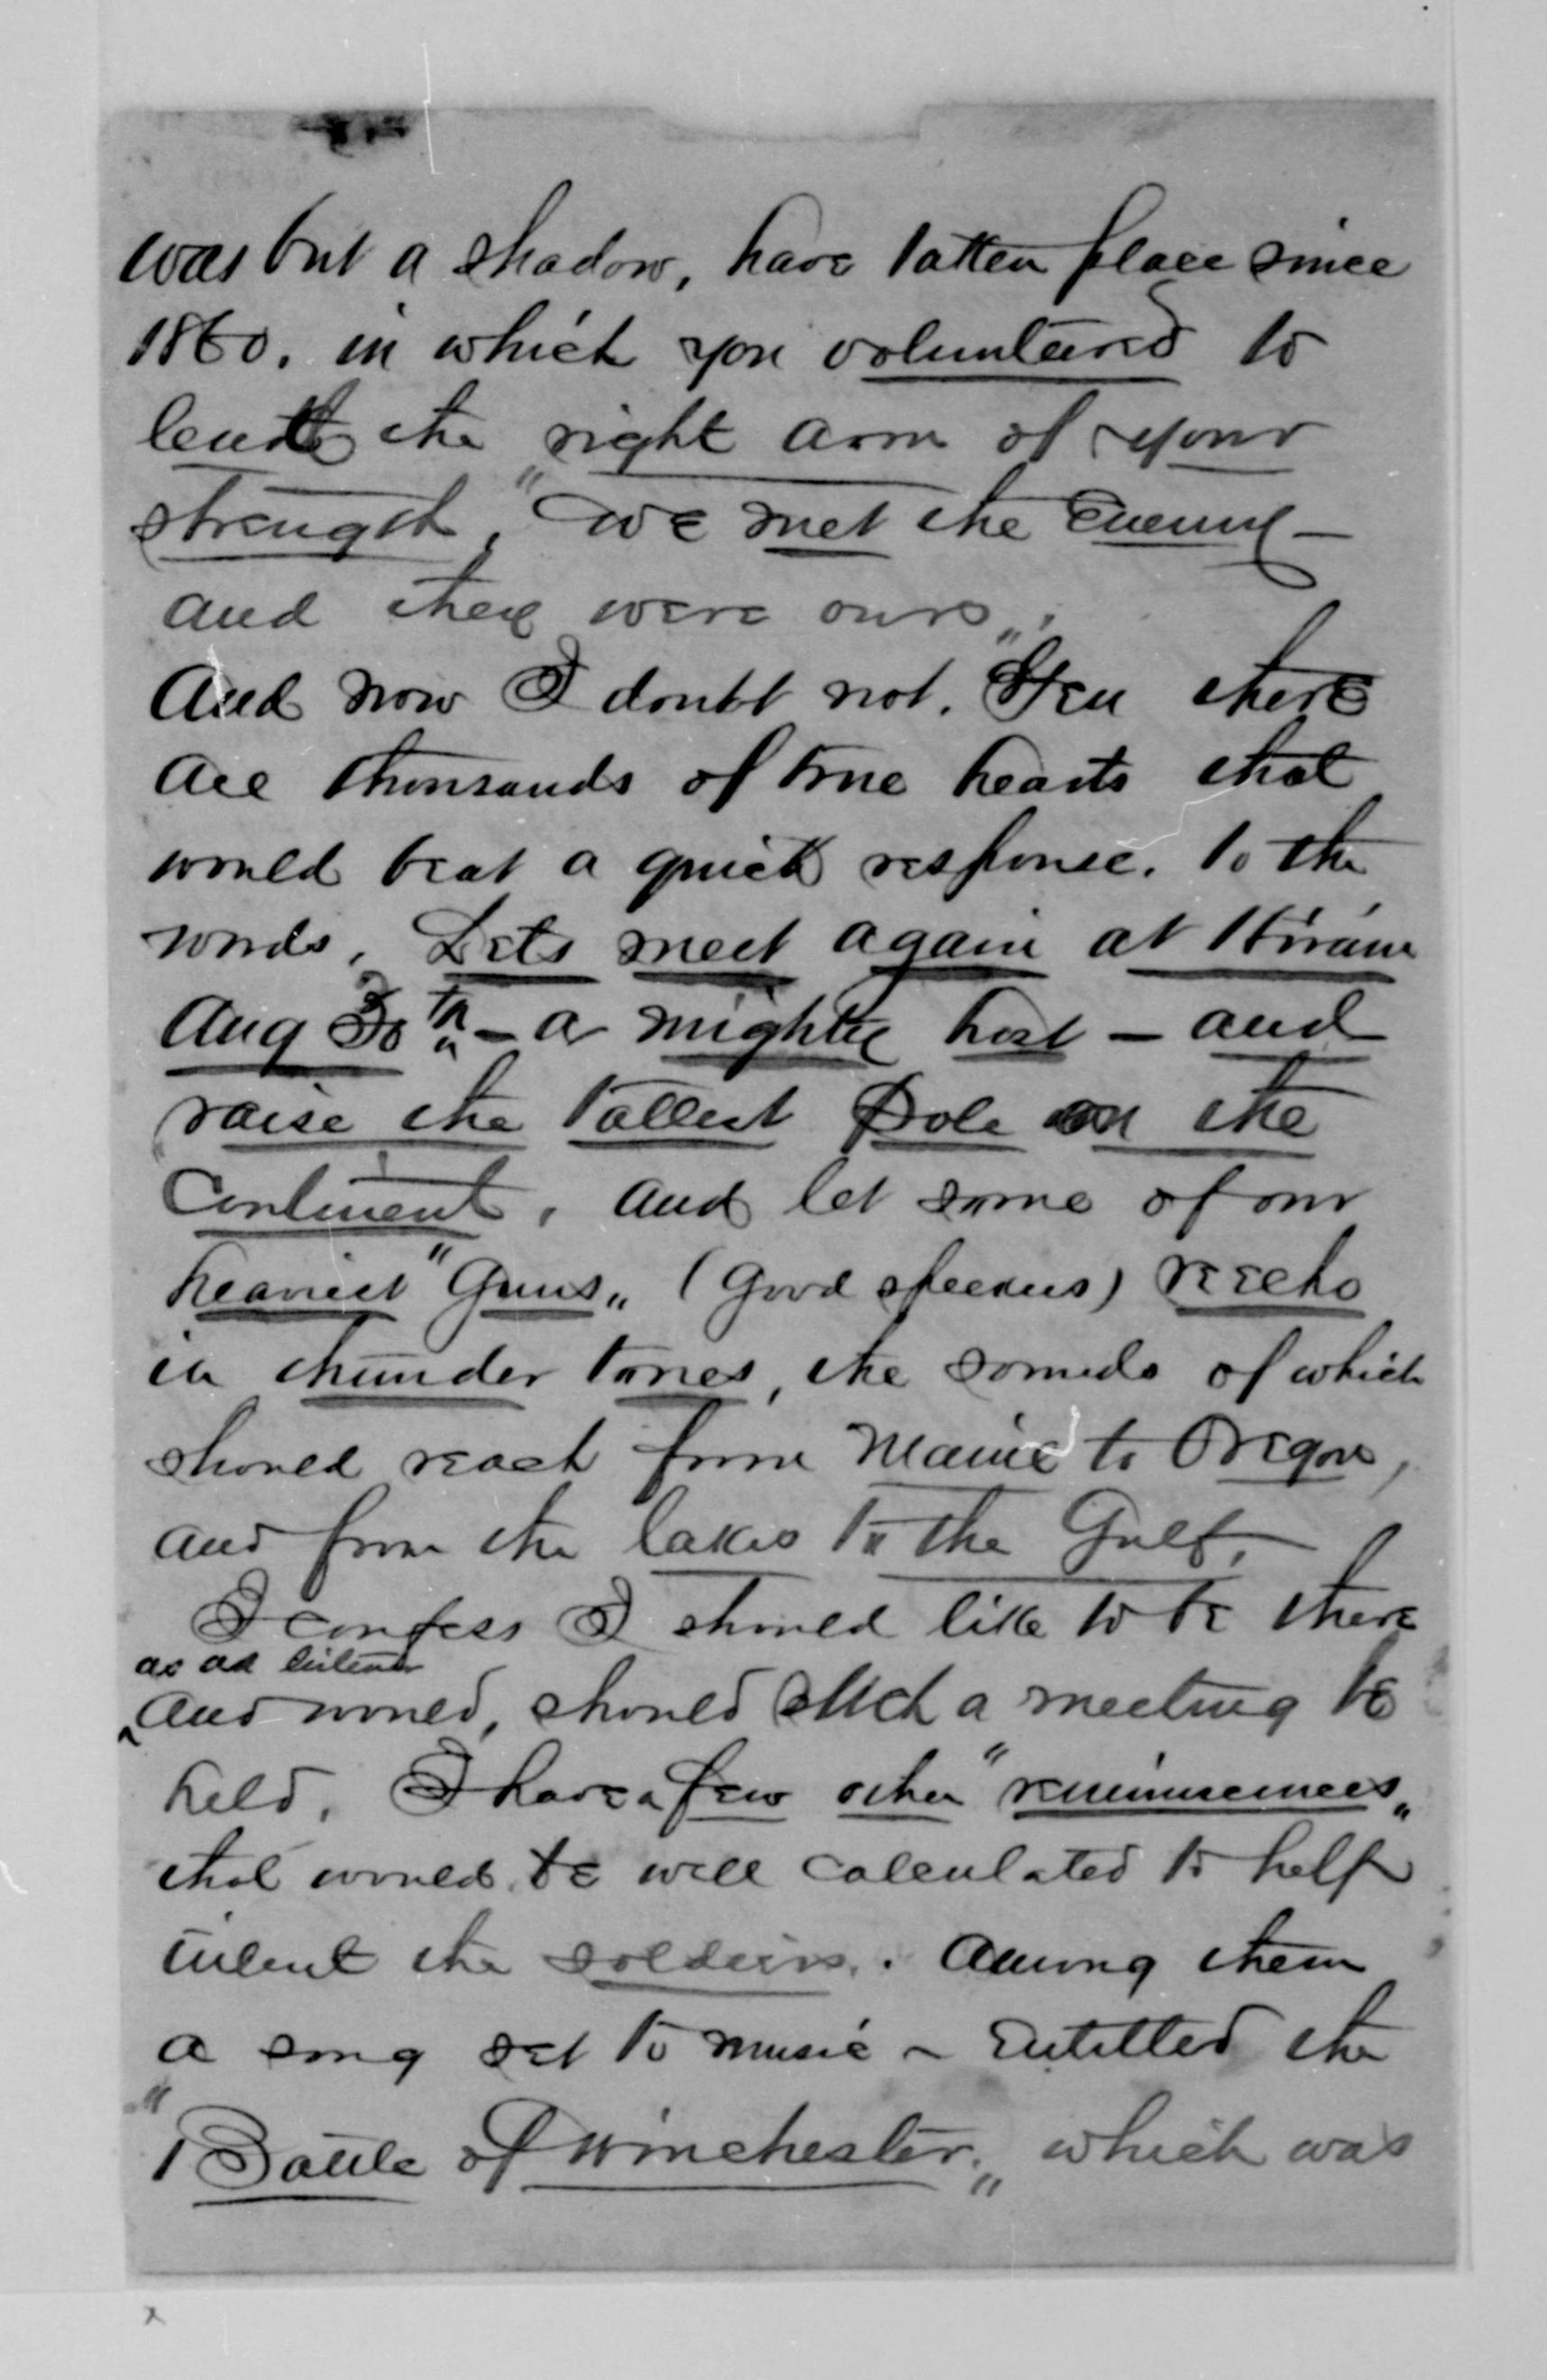 was but a shadow, have taken place since
1860. in which you voluntered to
lend the right arm of your
strength, "We met the Enemy —
and they were ours".
And now I doubt not. Gen there
are thousands of true hearts that
would beat a quick response. to the
words, Lets meet again at Hiram
Aug 30th — a mighty host — and
raise the tallest Pole on the
Continent, and let some of our
heaviest "Guns" (good speekers) reecho
in thunder tones, the sounds of which
should reach from Maine to Oregon,
and from the lakes to the Gulf.
I confess I should like to be there
as a listener
and would, should such a meeting be
held. I have a few other "reminisences"
that would be well calculated to help
the soldiers. Among them
a song set to music – entitled the
"Battle of Winchester," which was